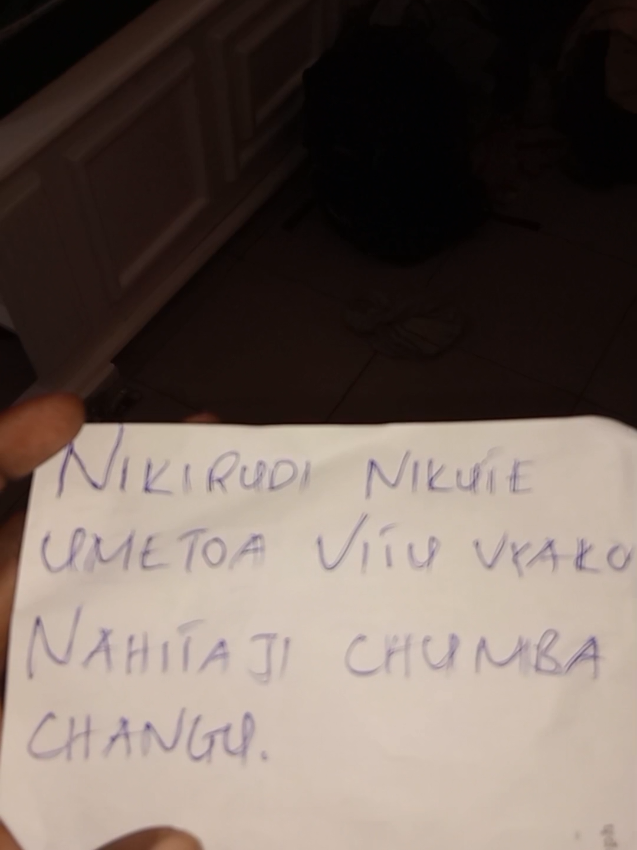 NIKIRUDI NIKUTE
UMETOA VITU VYAKO
NAHITAJI CHUMBA
CHANGU.